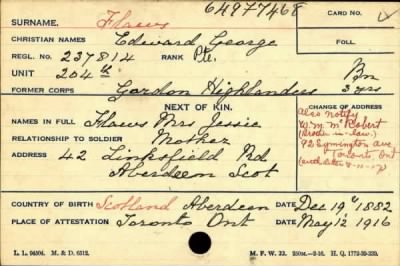 64977468
CARD NO.
SURNAME. Flaws
CHRISTIAN NAMES Edward George
FOLL.
REGL. NO. 237814 RANK Pte.
UNIT 204th
FORMER CORPS Gordon Highlanders 3 yrs
NEXT OF KIN.
CHANGE OF ADDRESS
NAMES IN FULL Flaws Mrs Jessie
RELATIONSHIP TO SOLDIER Mother
ADDRESS 42 Linksfield Rd
Aberdeen Scot
Also Notify
W. M. McRobert
(Brother-in-law)
92 Symington ave,
Toronto, Ont
COUNTRY OF BIRTH Scotland Aberdeen DATE Dec 19th 1882
PLACE OF ATTESTATION Toronto Ont DATE May 12 1916
L. L. 94504. M. & D. 6512. M. F. W. 22. H. Q. 1772-39-339.